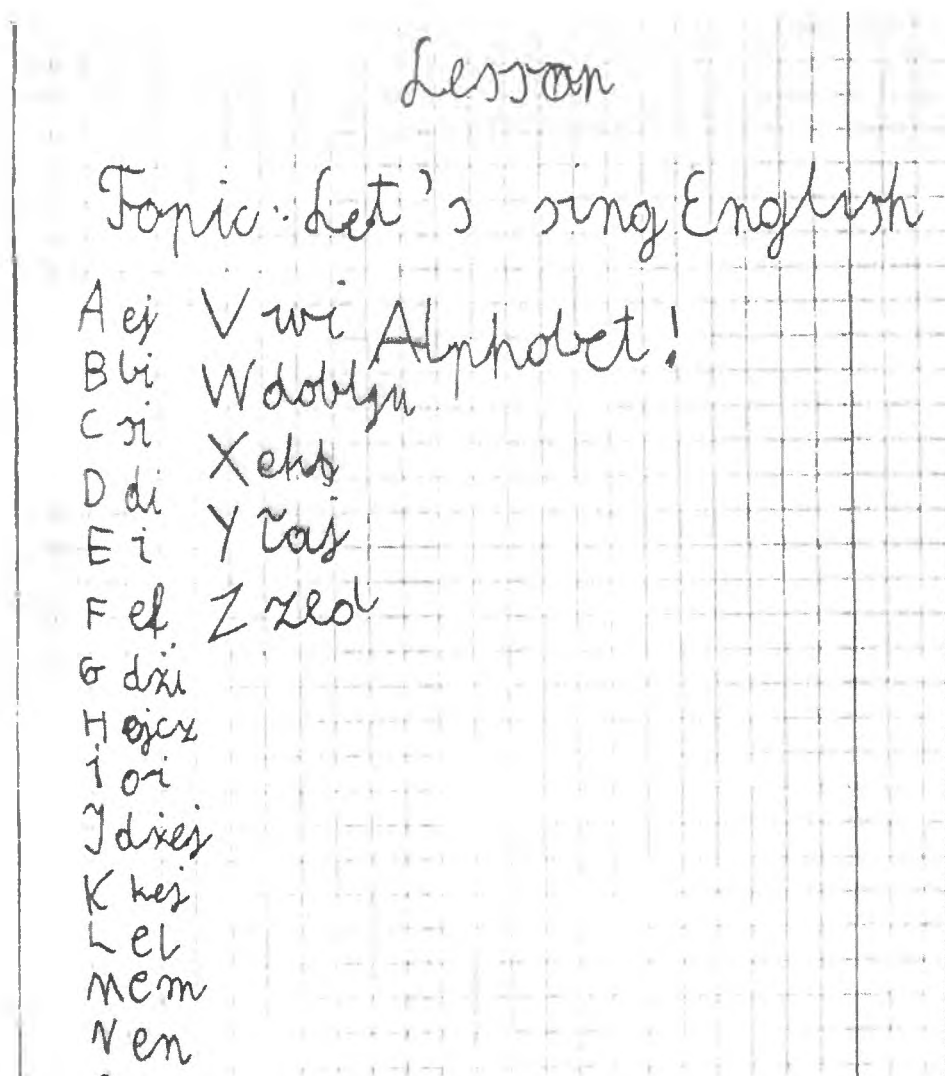 Lesson
Topic: Let's sing English
Alphabet!
A ej
B bi
C si
D di
E i
F ef
G dżi
H ejcz
I ai
J dżej
K kej
L el
M em
N en
V wi
W dablju
X eks
Y łaj
Z zed